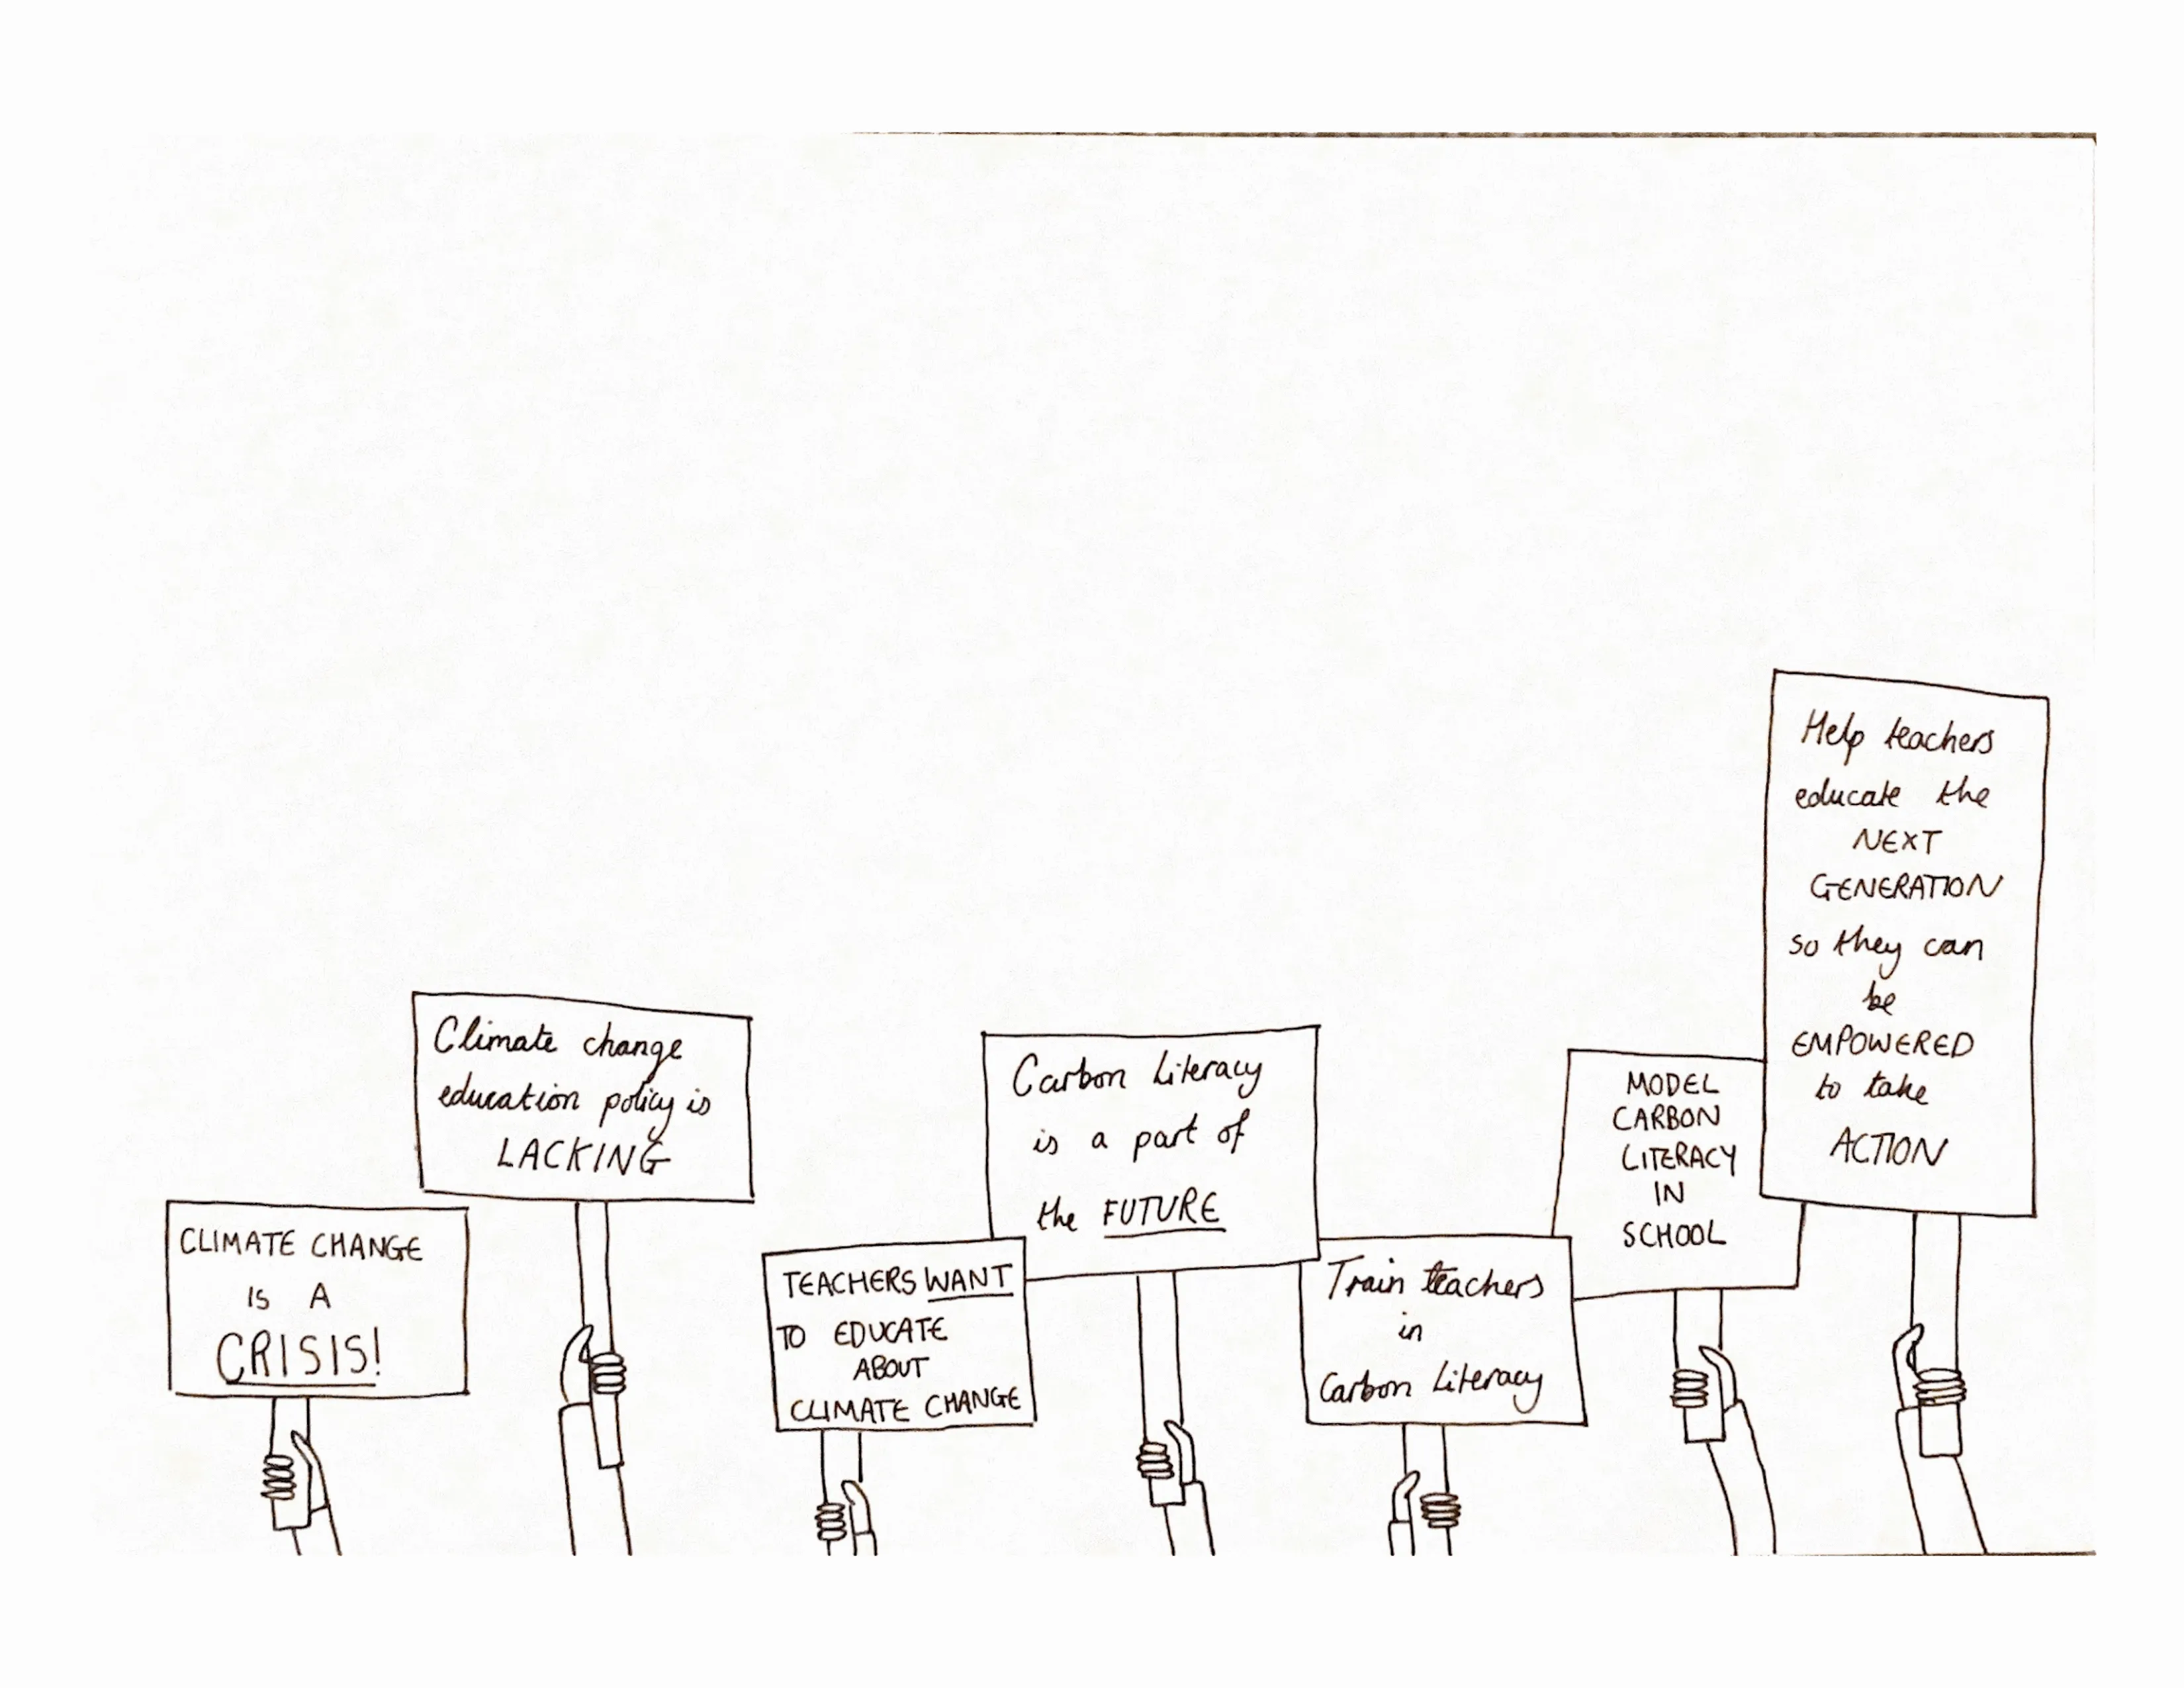 CLIMATE CHANGE
IS A
CRISIS!
Climate change
education policy is
LACKING
TEACHERS WANT
TO EDUCATE
ABOUT
CLIMATE CHANGE
Carbon Literacy
is a part of
the FUTURE
Train teachers
in
Carbon Literacy
MODEL
CARBON
LITERACY
IN
SCHOOL
Help teachers
educate the
NEXT
GENERATION
so they can
be
EMPOWERED
to take
ACTION